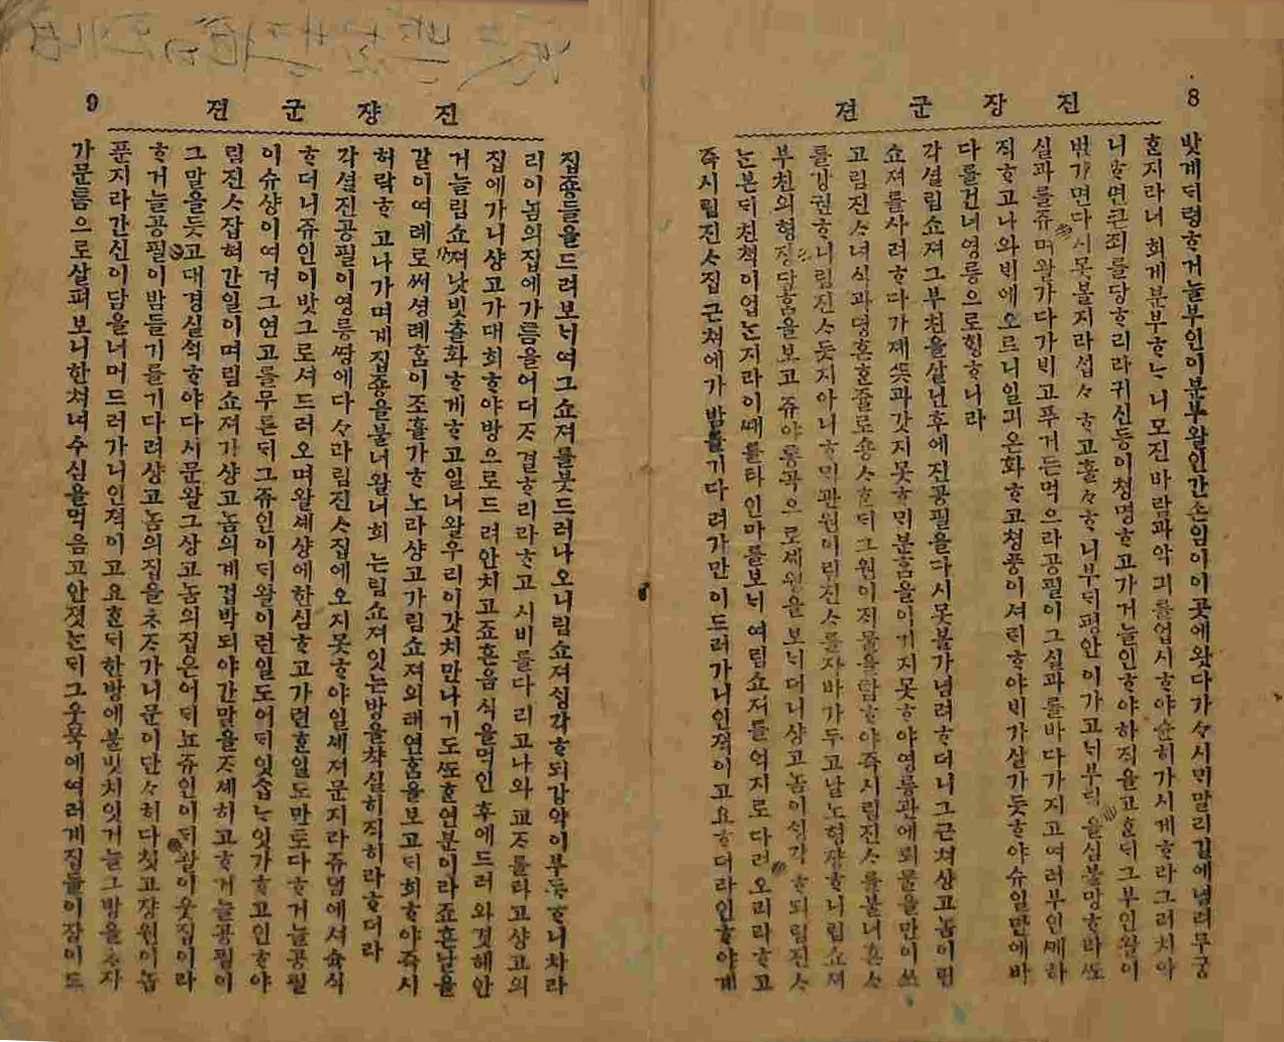 8
진 장 군 젼
밧게 ᄃᆡ령ᄒᆞ거늘 부인이 분부 왈 인간 손임이 이곳에 왓다가 가々시ᄆᆡ 말리 길에 념려 무궁
ᄒᆞᆫ지라 너희게 분부ᄒᆞᄂᆞ니 모진 바람과 악귀를 업시ᄒᆞ야 순히 가시게 ᄒᆞ라 그러치 아
니ᄒᆞ면 큰 죄를 당ᄒᆞ리라 귀신등이 쳥명ᄒᆞ고 가거늘 인ᄒᆞ야 하직을 고ᄒᆞᆫᄃᆡ 그 부인 왈 이
번 가면 다시 못 볼지라 섭々ᄒᆞ고 홀々ᄒᆞ니 부ᄃᆡ 평안이 가고 ᄂᆡ 부ᄐᆡᆨ을 심불망ᄒᆞ라 ᄯᅩ
실과를 쥬며 왈 가다가 ᄇᆡ 고푸거든 먹으라 공필이 그 실과를 바다가지고 여러 부인ᄭᅦ 하
직ᄒᆞ고 나와 ᄇᆡ에 오르니 일긔 온화ᄒᆞ고 쳥풍이 셔ᄅᆡᄒᆞ야 ᄇᆡ가 살가듯ᄒᆞ야 슈일만에 바
다를 건너 영릉으로 ᄒᆡᆼᄒᆞ니라
각셜 림쇼져 그 부친을 살닌 후에 진공필을 다시 못 볼가 념려ᄒᆞ더니 그 근쳐 샹고놈이 림
쇼져를 사려ᄒᆞ다가 제 ᄯᅳᆺ과 갓지 못ᄒᆞᄆᆡ 분홈을 이기지 못ᄒᆞ야 영릉관에 뢰물을 만이 쓰
고 림진ᄉᆞ 녀식과 뎡혼ᄒᆞᆫ 줄로 숑ᄉᆞᄒᆞᆫᄃᆡ 그 원이 ᄌᆡ물을 탐ᄒᆞ야 즉시 림진ᄉᆞ를 불너 혼ᄉᆞ
를 강권ᄒᆞ니 림진ᄉᆞ 듯지 아니ᄒᆞᄆᆡ 관원이 림진ᄉᆞ를 자바 가두고 날노 형쟝ᄒᆞ니 림쇼져
부친의 형쟝 당홈을 보고 쥬야통곡으로 세월을 보ᄂᆡ더니 샹고놈이 ᄉᆡᆼ각ᄒᆞ되 림진ᄉᆞ
ᄂᆞᆫ 본ᄃᆡ 친쳑이 업ᄂᆞᆫ지라 이 ᄯᅢ를 타 인마를 보ᄂᆡ여 림쇼져를 억지로 다려오리라 ᄒᆞ고
즉시 림진ᄉᆞ집 근쳐에 가 밤들기 다려 가만이 드러가니 인젹이 고요ᄒᆞ더라 인ᄒᆞ야 게
9
진 쟝 군 젼
집죵들을 드려보ᄂᆡ여 그 쇼져를 붓드러 나오니 림쇼져 ᄉᆡᆼ각ᄒᆞ되 강약이 부동ᄒᆞ니 차라
리 이놈의 집에 가 틈을 어더 ᄌᆞ결ᄒᆞ리라 ᄒᆞ고 시비를 다리고 나와 교ᄌᆞ를 타고 샹고의
집에 가니 샹고가 대희ᄒᆞ야 방으로 드려 안치고 죠흔 음식을 먹인 후에 드러와 겻헤 안
거늘 림쇼져 낫빗츨 화ᄒᆞ게 ᄒᆞ고 일너 왈 우리 이갓치 만나기도 ᄯᅩᄒᆞᆫ 연분이라 죠흔 날을
갈이여 례로써 셩례홈이 조흘가 ᄒᆞ노라 샹고가 림쇼져의 태연홈을 보고 ᄃᆡ희ᄒᆞ야 즉시
허락ᄒᆞ고 나가며 게집죵을 불너 왈 너희는 림쇼져 잇는 방을 착실히 직히라 ᄒᆞ더라
각셜 진공필이 영릉 ᄯᅡᆼ에 다々라 림진ᄉᆞ집에 오지 못ᄒᆞ야 일셰 져문지라 쥬뎜에셔 슉식
ᄒᆞ더니 쥬인이 밧그로셔 드러오며 왈 셰샹에 한심ᄒᆞ고 가련ᄒᆞᆫ 일도 만토다 ᄒᆞ거늘 공필
이 슈샹이 여겨 그 연고를 무른ᄃᆡ 그 쥬인이 ᄃᆡ왈 이런 일도 어ᄃᆡ 잇슴ᄂᆞ잇가 ᄒᆞ고 인ᄒᆞ야
림진ᄉᆞ 잡혀간 일이며 림쇼져가 샹고놈의게 겁박되야 간 말을 ᄌᆞ셰히 고ᄒᆞ거늘 공필이
그 말을 듯고 대경실ᄉᆡᆨᄒᆞ야 다시 문왈 그 샹고놈의 집은 어ᄃᆡ뇨 쥬인이 ᄃᆡ왈 이 웃집이라
ᄒᆞ거늘 공필이 밤들기를 기다려 샹고놈의 집을 ᄎᆞᄌᆞ가니 문이 단々히 다첫고 쟝원이 놉
푼지라 간신이 담을 너머 드러가니 인젹이 고요ᄒᆞᆫᄃᆡ 한 방에 불빗치 잇거늘 그 방을 ᄎᆞ자
가 문틈으로 살펴보니 한 쳐녀 수심을 먹음고 안졋ᄂᆞᆫᄃᆡ 그 웃묵에 여러 게집들이 잠이 드